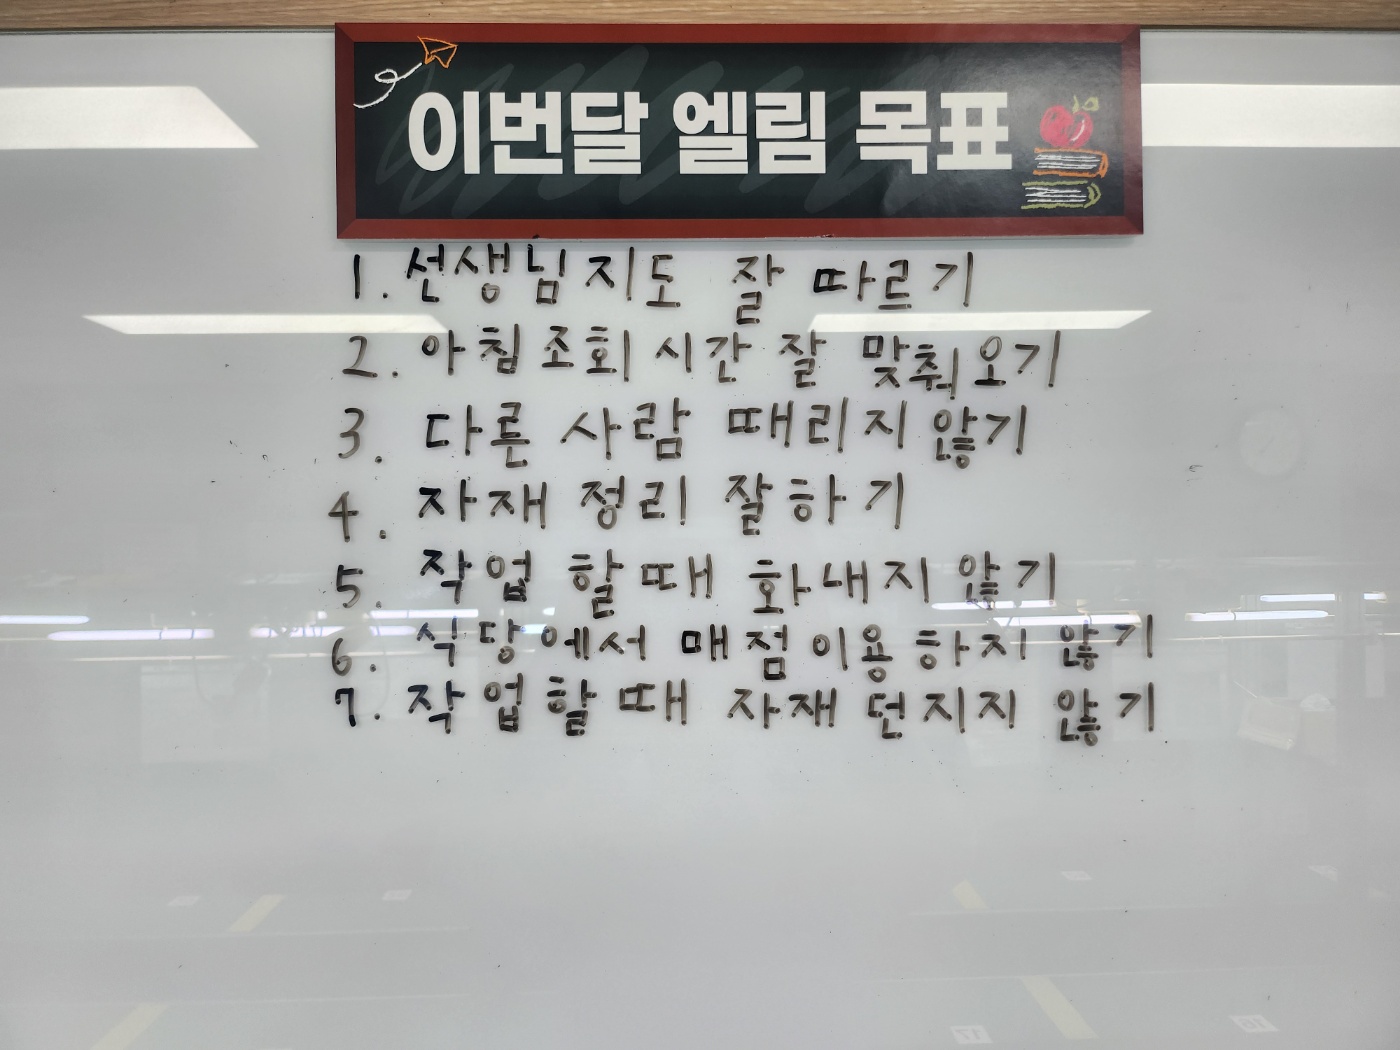 이번달 엘림 목표
1. 선생님 지도 잘 따르기
2. 아침조회 시간 잘 맞춰 오기
3. 다른 사람 때리지 않기
4. 자재 정리 잘하기
5. 작업 할때 화내지 않기
6. 식당에서 매점이용 하지 않기
7. 작업할때 자재 던지지 않기